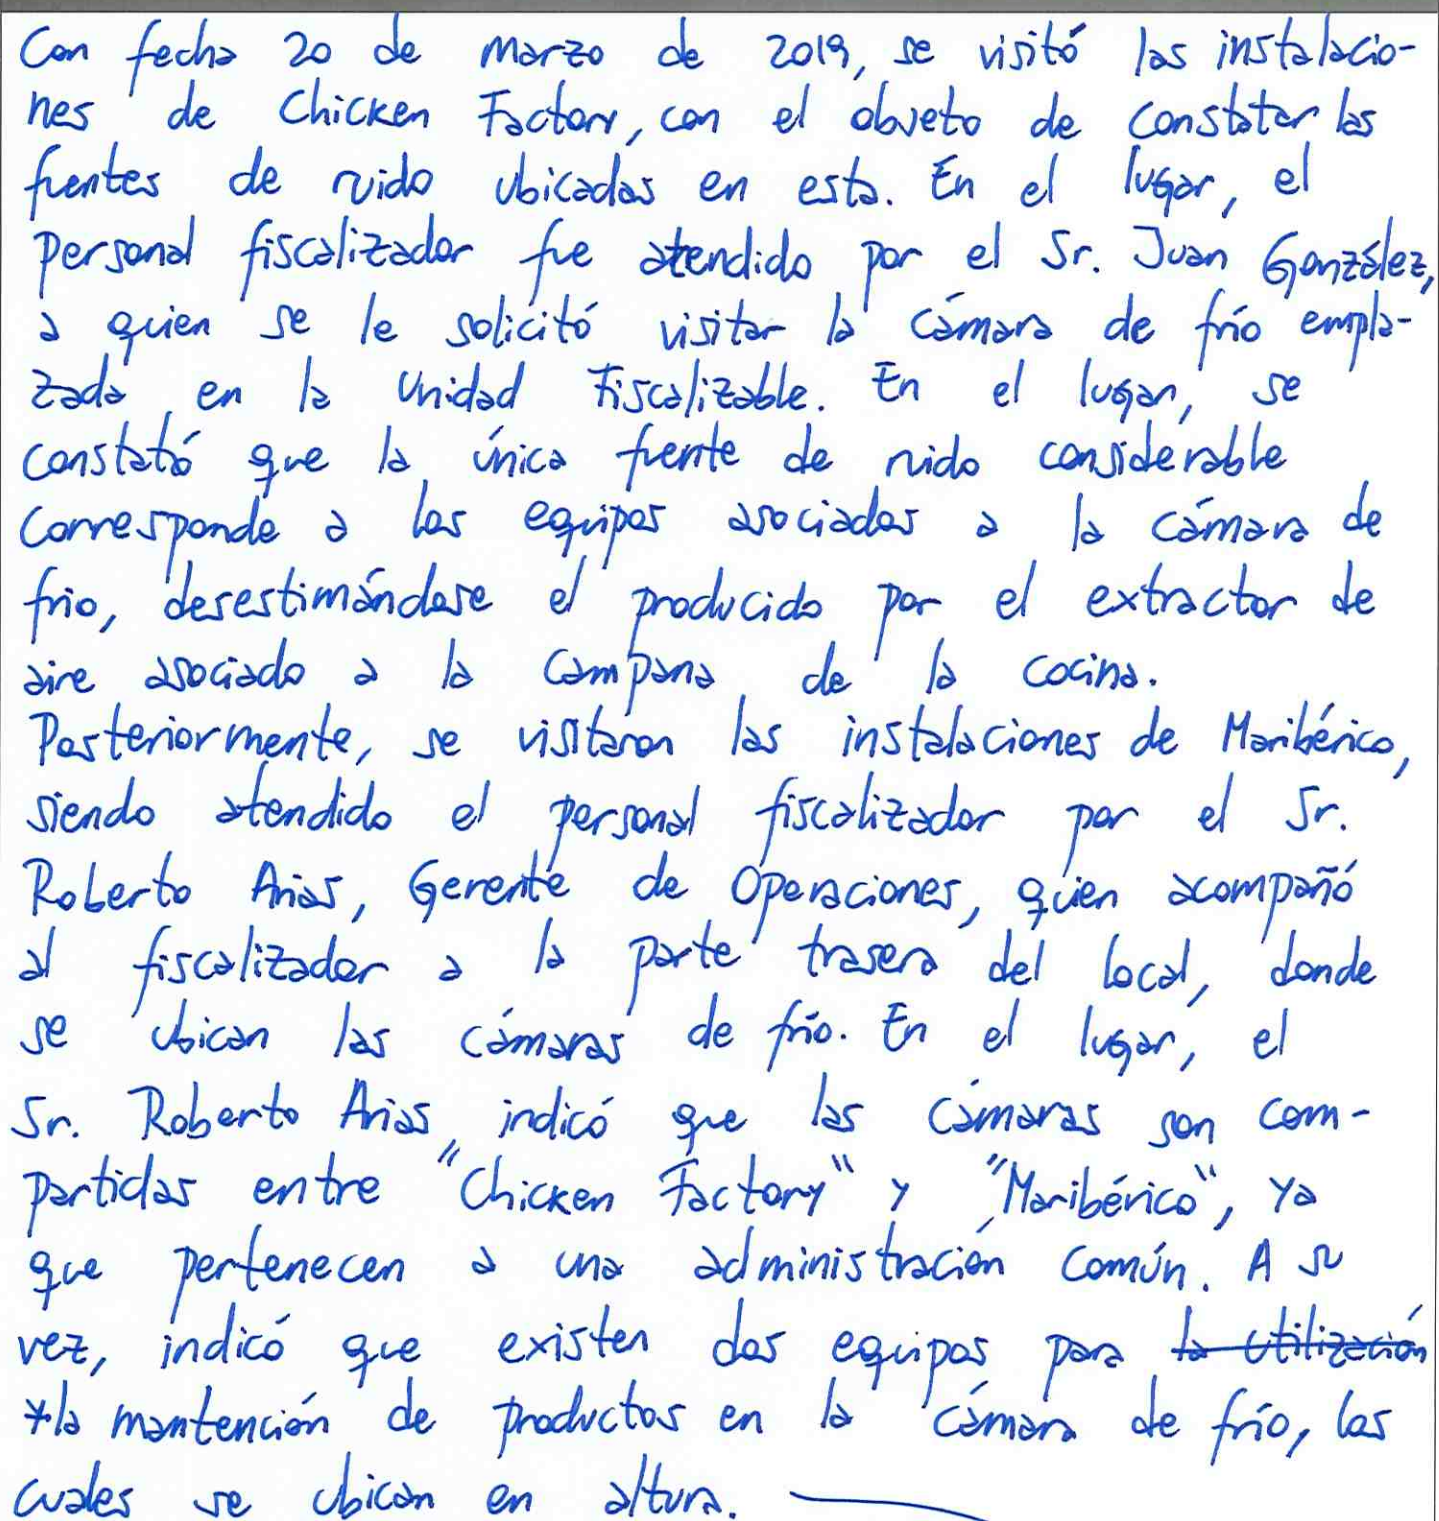 Con fecha 20 de marzo de 2019, se visitó las instalacio-
nes de Chicken Factory, con el objeto de constatar las
fuentes de ruido ubicadas en esta. En el lugar, el
personal fiscalizador fue atendido por el Sr. Juan González,
a quien se le solicitó visitar la cámara de frío empla-
zada en la Unidad Fiscalizable. En el lugar, se
constató que la única fuente de ruido considerable
corresponde a los equipos asociados a la cámara de
frio, desestimándose el producido por el extractor de
aire asociado a la campana de la cocina.
Posteriormente, se visitaron las instalaciones de Maribérico,
siendo atendido el personal fiscalizador por el Sr.
Roberto Arias, Gerente de Operaciones, quien acompañó
al fiscalizador a la parte trasera del local, donde
se ubican las cámaras de frío. En el lugar, el
Sr. Roberto Arias, indicó que las cámaras son com-
partidas entre "Chicken Factory" y "Maribérico", ya
que pertenecen a una administración común. A su
vez, indicó que existen dos equipos para la utilización
y la mantención de productos en la cámara de frío, los
cuales se ubican en altura.